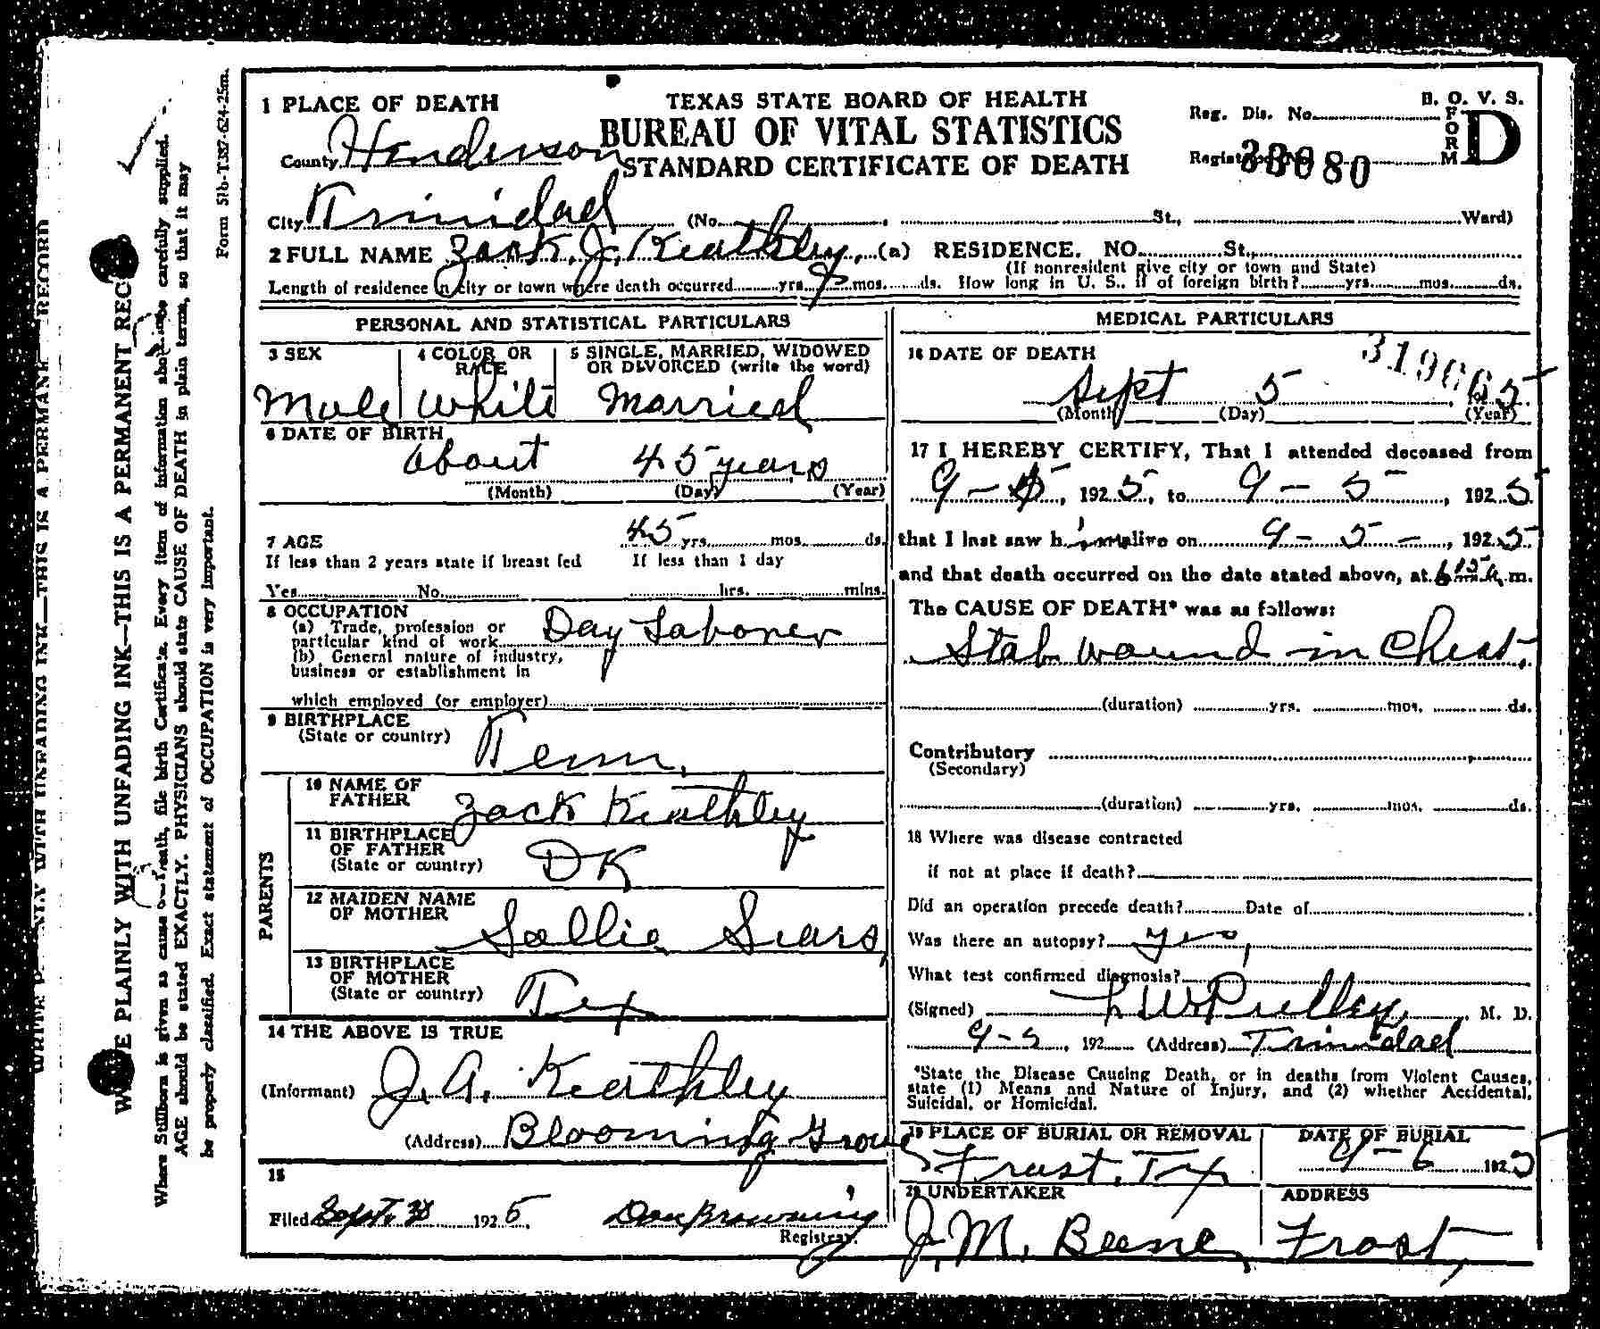 1 PLACE OF DEATH
TEXAS STATE BOARD OF HEALTH
BUREAU OF VITAL STATISTICS
STANDARD CERTIFICATE OF DEATH
B. O. V. S.
FORM D
Reg. Dis. No.
33080
County Henderson
City Trinidad (No. , St., Ward)
2 FULL NAME Zack J. Keathley, (a) RESIDENCE. NO. St.,
(If nonresident give city or town and State)
Length of residence in city or town where death occurred yrs. 9 mos. ds. How long in U. S., if of foreign birth? yrs. mos. ds.
PERSONAL AND STATISTICAL PARTICULARS
3 SEX
4 COLOR OR RACE
5 SINGLE, MARRIED, WIDOWED OR DIVORCED (write the word)
Male White Married
6 DATE OF BIRTH
about 45 years
(Month) (Day) (Year)
7 AGE 45 yrs. mos. ds.
If less than 2 years state if breast fed If less than 1 day
Yes No hrs. mins.
8 OCCUPATION
(a) Trade, profession or
particular kind of work Day Laborer
(b) General nature of industry,
business or establishment in
which employed (or employer)
9 BIRTHPLACE
(State or country) Tenn.
PARENTS
10 NAME OF
FATHER Zack Keathley
11 BIRTHPLACE
OF FATHER
(State or country) DK
12 MAIDEN NAME
OF MOTHER Sallie Sears
13 BIRTHPLACE
OF MOTHER
(State or country) Tex
14 THE ABOVE IS TRUE
(Informant) J. A. Keathley
(Address) Blooming Grove
15
Filed Sept. 192 5, Dan Browning
Registrar.
MEDICAL PARTICULARS
16 DATE OF DEATH
Sept 5
(Month) (Day) (Year)
17 I HEREBY CERTIFY, That I attended deceased from
9 - 5, 192 5, to 9 - 5, 192 5
that I last saw h im alive on 9 - 5 -, 192 5
and that death occurred on the date stated above, at m.
The CAUSE OF DEATH* was as follows:
Stab wound in chest.
(duration) yrs. mos. ds.
Contributory
(Secondary)
(duration) yrs. mos. ds.
18 Where was disease contracted
if not at place if death?
Did an operation precede death? Date of
Was there an autopsy? yes,
What test confirmed diagnosis?
(Signed) M. D.
9-5, 192 (Address) Trinidad
*State the Disease Causing Death, or in deaths from Violent Causes,
state (1) Means and Nature of Injury, and (2) whether Accidental,
Suicidal, or Homicidal.
19 PLACE OF BURIAL OR REMOVAL DATE OF BURIAL
Frost, Tex 9-6 1925
20 UNDERTAKER ADDRESS
J. M. Beene, Frost,
WRITE PLAINLY WITH UNFADING INK—THIS IS A PERMANENT RECORD
Form 51b-T387-624-25m.
AGE should be stated EXACTLY. PHYSICIANS should state CAUSE OF DEATH in plain terms, so that it may
be properly classified. Exact statement of OCCUPATION is very important.